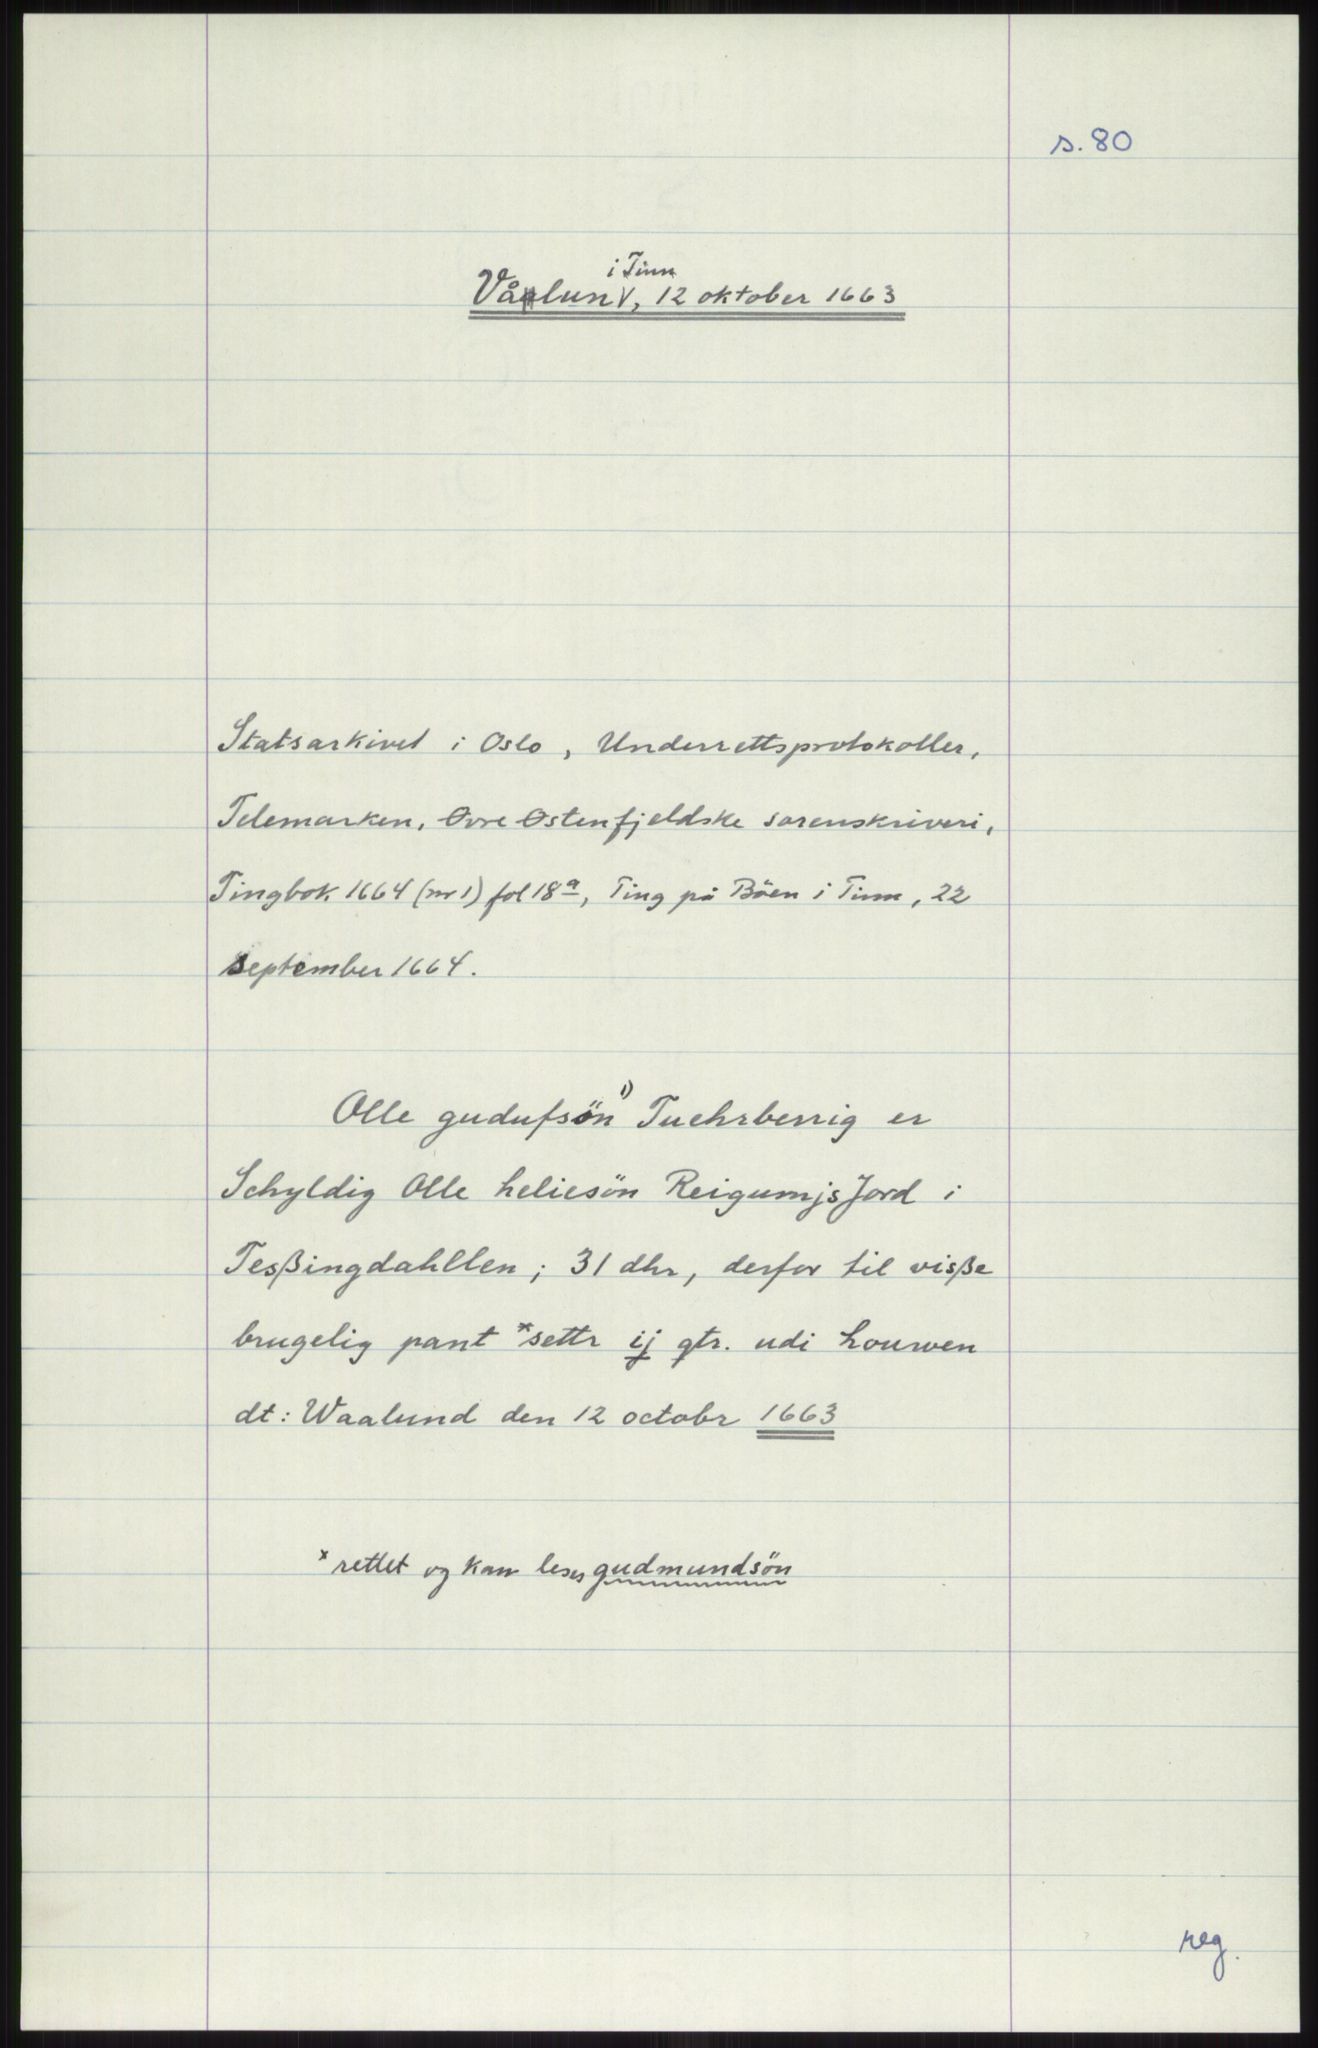 s. 80
i Tinn
Vålun, 12 oktober 1663
Statsarkivet i Oslo, Underrettsprotokoller,
Telemarken, Øvre Østenfjeldske sorenskriveri,
Tingbok 1664 (nr 1) fol 18a, Ting på Böen i Tinn, 22
september 1664.
Olle gudufsön 1) Tuehrberrig er
Schyldig Olle heliesön Reigumjs Jord i
Tesßingdahllen; 31 dhr, derfor til visße
brugelig pant *settr ij qtr. udi houwen
dt: Waalund den 12 octobr 1663
* rettet og kan leses gudmundsön
reg.